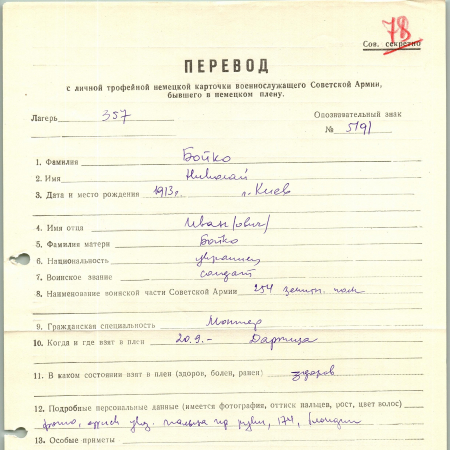 78
Сов. секретно
ПЕРЕВОД
с личной трофейной немецкой карточки военнослужащего Советской Армии,
бывшего в немецком плену.
Лагерь 357 Опознавательный знак
№ 5191
1. Фамилия Бойко
2. Имя Николай
3. Дата и место рождения 1913г. г. Киев
4. Имя отца Иван/ович/
5. Фамилия матери Бойко
6. Национальность украинец
7. Воинское звание солдат
8. Наименование воинской части Советской Армии 254 зенитн. полк
9. Гражданская специальность Монтер
10. Когда и где взят в плен 20.9.- Дарница
11. В каком состоянии взят в плен (здоров, болен, ранен) здоров
12. Подробные персональные данные (имеется фотография, оттиск пальцев, рост, цвет волос)
фото, оттиск указ. пальца пр руки, 174, блондин
13. Особые приметы